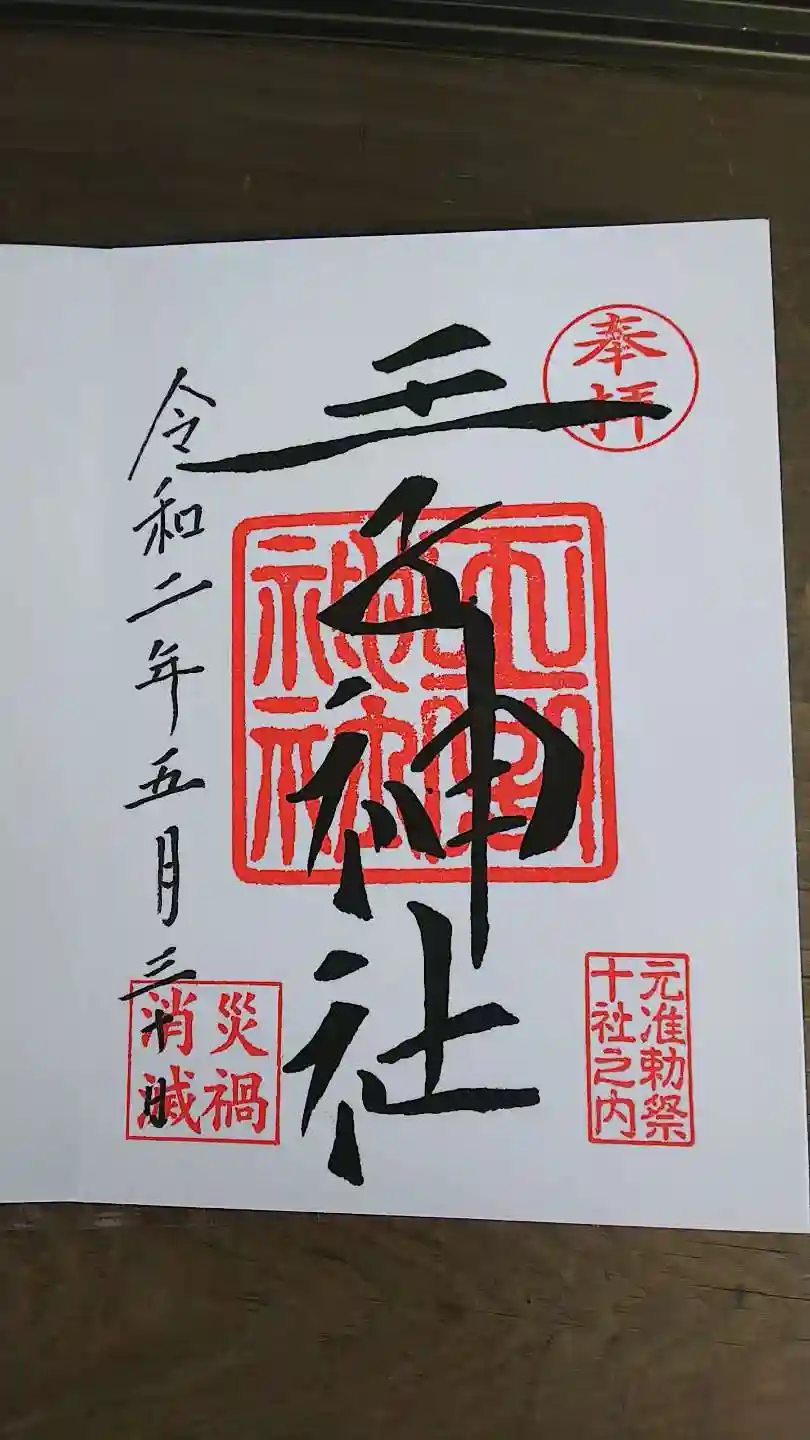 奉拝
王子神社
王子神社
元准勅祭
十社之内
令和二年五月三十日
災禍
消滅